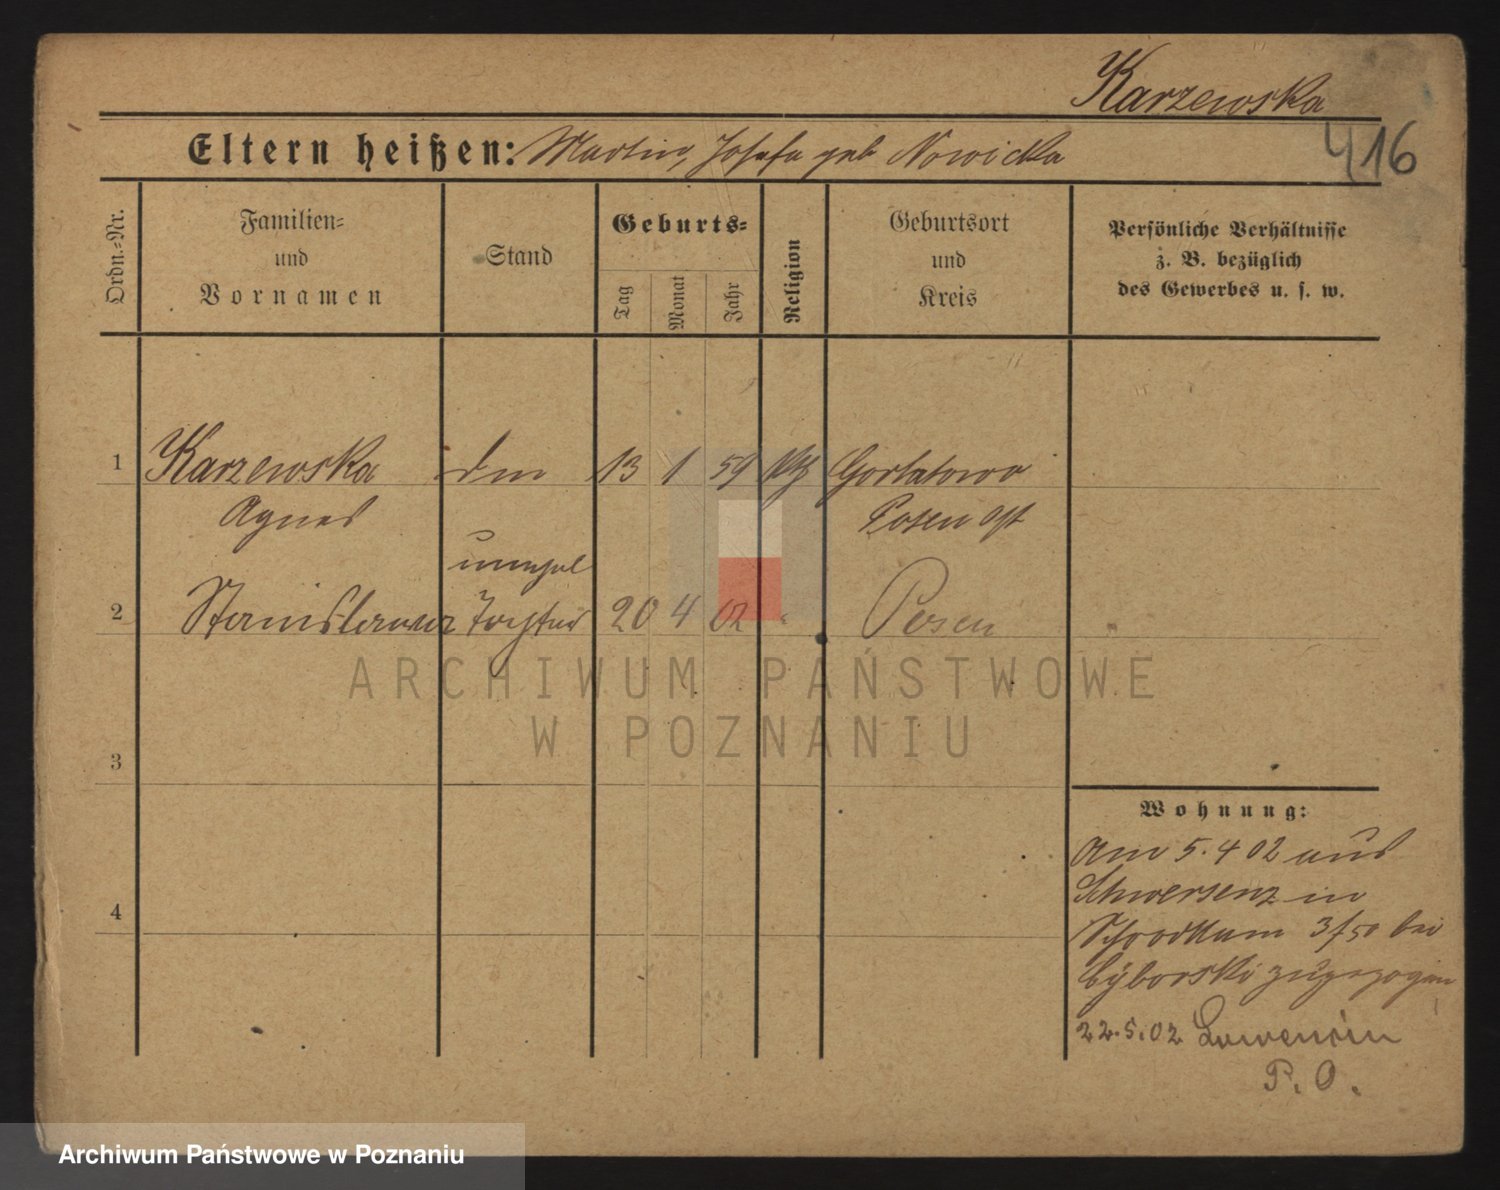 Karzewska
416
Eltern heißen: Martin, Josefa geb Nowicka
Ordn.-Nr.
Familien-
und
Vornamen
Stand
Geburts-
Tag
Monat
Jahr
Religion
Geburtsort
und
Kreis
Persönliche Verhältnisse
z. B. bezüglich
des Gewerbes u. s. w.
1 Karzewska 13 1 59 kth Gortatowo
Agnes Posen Ost
unehel
2 Stanislawa Tochter 20 4 02 " Posen
ARCHIWUM PAŃSTWOWE
W POZNANIU
3
4
Wohnung:
Am 5.4 02 aus
Schwersenz in
Schrodkam 3 bei
Cyborski zugezogen
22.5.02
P. O.
Archiwum Państwowe w Poznaniu